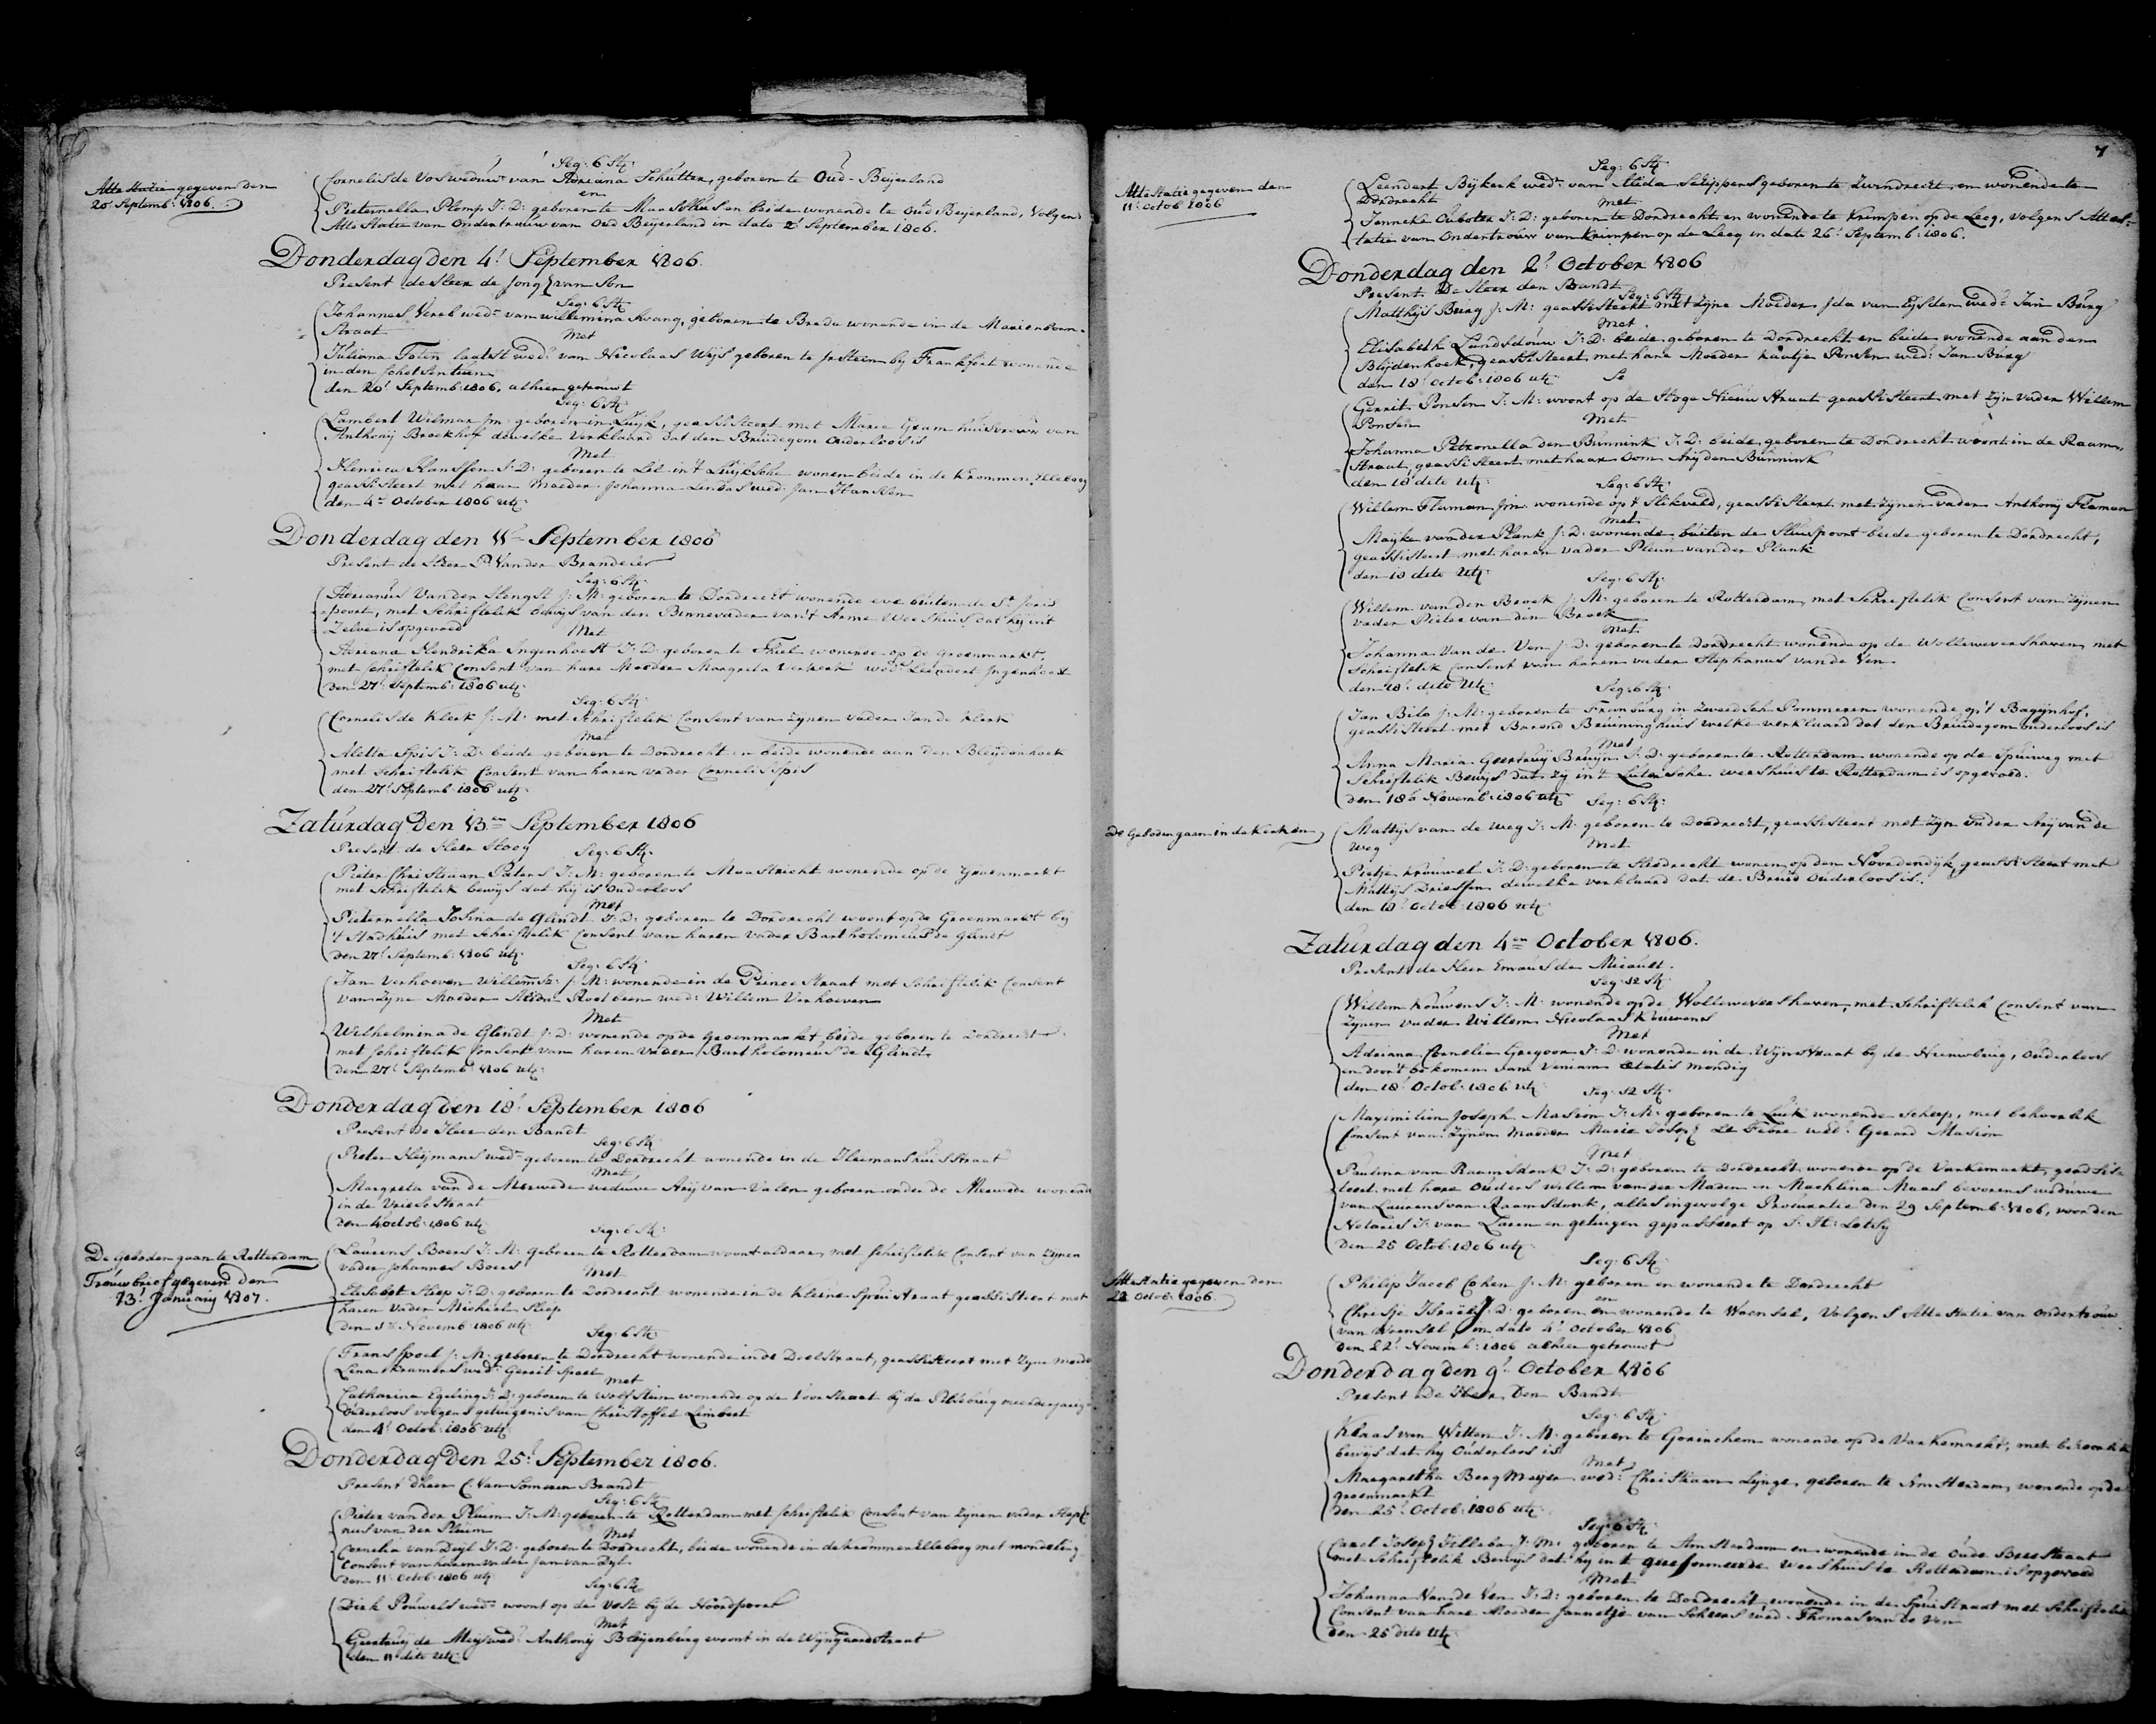 Seg: 6 St:
Attestatie gegeven den
20 Septemb: 1806.
Cornelis de Vos weduwr van Adriana Schutter, geboren te Oud-Beijerland
en
Pieternella Plomp J: D: geboren te Maassluis en beide wonende te Oud Beijerland, Volgens
Attestatie van Ondertrouw van Oud Beijerland in dato 2 September 1806.
Donderdag den 4e September 1806.
Present de Heer de Jong van Son
Seg: 6 St:
Johannes Vereb wedr van Willemina Kwang, geboren te Breda wonende in de Marienborn-
Straat
Met
Juliana laatst wed: van Nicolaas Weijs geboren te bij Frankfort wonende
in den
den 20 Septemb: 1806, alhier getrouwt
Seg: 6 St:
Lambert Wilmar Jm: geboren in Luijk, geassisteert met Marie Gram huisvrouw van
Anthonij Broekhof dewelke Verklaard dat den Bruidegom Ouderloos is
Met
Henrica Hanssen J: D: geboren te in 't Luijksche wonen beide in de Krommen Elleboog
geassisteert met haar Moeder Johanna wed: Jan Hanssen
den 4e October 1806 utz:
Donderdag den 11e September 1806
Present de Heer P: Vander Brandeler
Seg: 6 St:
Adrianus Vander Hengst J: M: geboren te Dordrecht wonende even buiten de St Joris
poort, met Schriftelik bewijs van den Binnevader van 't Arme Weeshuis dat hij in 't
Zelve is opgevoed
Met
Adriana Hendrika Ingenhoest J: D: geboren te Thiel wonende op de Groenmarkt,
met schriftelik Consent van hare Moeder Margreta Verkerk wed: Leendert Ingenhoest
den 27 Septemb: 1806 utz:
Seg: 6 St:
Cornelis de Klerk J: M: met Schriftelik Consent van zijnen vader Jan de Klerk
Met
Aletta Spis J: D: beide geboren te Dordrecht en beide wonende aan den Bleijdenhoek
met schriftelik Consent van haren vader Cornelis Spis
den 27 Septemb: 1806 utz:
Zaturdag Den 13en September 1806
Present de Heer Hoog
Seg: 6 St:
Pieter Christiaan Peters J: M: geboren te Maastricht wonende op de Groenmarkt
met schriftelik bewijs dat hij is Ouderloos
Met
Pieternella Josina de Glindt J: D: geboren te Dordrecht woont op de Groenmarkt bij
't Stadhuis met schriftelik Consent van haren vader Bartholomeus de Glindt
den 27 Septemb: 1806 utz:
Seg: 6 St:
Jan Verhoeven Willemsz: J: M: wonende in de Prince Straat met schriftelik Consent
van zijne Moeder Alida Roelbeen wed: Willem Verhoeven
Met
Wilhelmina de Glindt J: D: wonende op de Groenmarkt, beide geboren te Dordrecht
met schriftelik Consent van haren Vader Bartholomeus de Glindt
den 27 Septemb: 1806 utz:
Donderdag den 18e September 1806
Present de Heer den Bandt
Seg: 6 St:
Pieter Heijmans wedr geboren te Dordrecht wonende in de Heimanshuis Straat
Met
Margreta van de Merwede weduwe Arij van Valen geboren onder de Merwede wonende
in de Vriese Straat
den 4 Octob: 1806 utz:
Seg: 6 St:
De Geboden gaan te Rotterdam
Trouwbrief gegeven den
13e January 1807.
Laurens Boers J: M: geboren te Rotterdam woont aldaar, met schriftelik Consent van zijnen
vader Johannes Boers
Met
Elisabet Sliep J: D: geboren te Dordrecht wonende in de Kleine Spui Straat geassisteert met
haren Vader Michiel Sliep
den 1e Novemb: 1806 utz:
Seg: 6 St:
Frans Spoel J: M: geboren te Dordrecht wonende in de Doelstraat, geassisteert met zijne Moeder
Lena Kramers wed: Gerrit Spoel
met
Catharina Egeling J: D: geboren te Wolfstein wonende op de Voorstraat bij de Pelsebrug meerderjarig
Ouderloos volgens getuigenis van Christoffel Limbert
den 4e Octob: 1806 utz:
Donderdag den 25e September 1806.
Present dheer C: Van Someren Brandt
Seg: 6 St:
Pieter van der Pluim J: M: geboren te Rotterdam met schriftelik Consent van zijnen vader Stepha
nus van der Pluim
Met
Cornelia van Dijl J: D: geboren te Dordrecht, beide wonende in de Krommen Elleboog met mondeling
Consent van haren vader Jan van Dijl
den 11 Octob: 1806 utz:
Seg: 6 St:
Dirk Pouwels wedr woont op de Vest bij de Noordpoort
Met
Geertruij de Meij wed: Anthonij Bleijenburg woont in de Wijngaardstraat
den 11 dito utz:
7
Seg: 6 St:
Attestatie gegeven den
11 Octob: 1806
Leendert Bijkerk wedr van Alida Schippers geboren te Zwindrecht, en wonende te
Dordrecht
met
Janneke Ouboter J: D: geboren te Dordrecht en wonende te Krimpen op de Leeg, volgens Attes-
tatie van Ondertrouw van Krimpen op de Leeg in dato 26 Septemb: 1806.
Donderdag den 2e October 1806
Present De Heer den Bandt
Seg: 6 St:
Matthijs Burg J: M: geassisteert met zijne Moeder Ida van Eijsden wed: Jan Burg
Met
Elisabeth Landsdouw J: D: beide geboren te Dordrecht en beide wonende aan den
Blijdenhoek, geassisteert met hare Moeder Kaatje Ponsen wed: Jan Burg
den 18 Octob: 1806 utz:
Gerrit Ponsen J: M: woont op de Hoge Nieuw Straat geassisteert met zijn vader Willem
Ponsen
Met
Johanna Petronella den Bunnink J: D: beide geboren te Dordrecht woont in de Raam-
Straat, geassisteert met haar Oom Arij den Bunnink
den 18 dito utz:
Seg: 6 St:
Willem Flaman Jm: wonende op 't Slikveld, geassisteert met zijnen vader Anthonij Flaman
met
Maijke van der Plank J: D: wonende buiten de Sluispoort beide geboren te Dordrecht,
geassisteert met haren vader Pleun van der Plank
den 18 dito utz:
Seg: 6 St:
Willem van den Broek J: M: geboren te Rotterdam, met Schriftelik Consent van zijnen
vader Pieter van den Broek
Met
Johanna Van de Ven J: D: geboren te Dordrecht wonende op de Wollewevershaven, met
Schriftelik Consent van haren vader Stephanus van de Ven
den 18e dito utz:
Seg: 6 St:
Jan Bilo J: M: geboren te Fransburg in Zweedsch Pommeren wonende op 't Bagijnhof,
geassisteert met Barend Bruininghuis welke verklaard dat den Bruidegom ouderloos is
Met
Anna Maria Geertruij Bruijn J: D: geboren te Rotterdam wonende op de Spuiweg met
Schriftelik Bewijs dat zij in 't Lutersche weeshuis te Rotterdam is opgevoed.
den Novemb: 1806 utz:
Seg: 6 St:
De Geboden gaan in de Kerken
Mattijs van de Weg J: M: geboren te Dordrecht, geassisteert met zijn vader Arij van de
Weg
Met
Pietje Krouwel J: D: geboren te Sliedrecht wonen op den Noordendijk, geassisteert met
Mattijs Driessen dewelke verklaard dat de Bruid Ouderloos is.
den 18 Octob: 1806 utz:
Zaturdag den 4en October 1806.
Present de Heer Emaus de Micault.
Seg: 12 St:
Willem Kouwens J: M: wonende op de Wollewevershaven, met schriftelik Consent van
zijnen vader Willem Nicolaas Kouwens
Met
Adriana Cornelia Gregoor J: D: wonende in de Wijnstraat bij de Nieuwbrug, Ouderloos
en door 't bekomen van Veniam AEtatis mondig
den 18 Octob: 1806 utz:
Seg: 12 St:
Maximilien Joseph Masion J: M: geboren te Luik wonende Scheep, met behoorlik
Consent van zijnen Moeder Marie Joseph Le Fevre wed: Gerard Masion
Met
Paulina van Raamsdonk J: D: geboren te Dordrecht wonende op de Varkemarkt, geassis-
teert met hare Ouders Willem van der Maden en Machlina Maas bevorens weduwe
van Laurens van Raamsdonk, alles ingevolge Procuratie den 29 Septemb: 1806, voor den
Notaris J: van Laren en getuigen gepasseert op S: H: Lotsij
den 25 Octob: 1806 utz:
Seg: 6 St:
Attestatie gegeven den
22 Octob: 1806.
Philip Jacob Cohen J: M: geboren en wonende te Dordrecht
en
Cheisje Israels J: D: geboren en wonende te Woensel, Volgens Attestatie van Ondertrouw
van Woensel, in dato 4e October 1806
den 22e Novemb: 1806 alhier getrouwt
Donderdag den 9e October 1806
Present De Heer Den Bandt
Seg: 6 St:
Klaas van Witten J: M: geboren te Gorinchem wonende op de Varkemarkt, met behoorlik
bewijs dat hij Ouderloos is
Met
Margaretha Bergmeijer wed: Christiaan Lijnge, geboren te Amsterdam, wonende op de
groenmarkt
den 25e Octob: 1806 utz:
Seg: 6 St:
Carel Joseph J: M: geboren te Amsterdam en wonende in de Oude Breestraat
met Schriftelik Bewijs dat hij in 't gereformeerde Weeshuis te Rotterdam is opgevoed
Met
Johanna Van de Ven J: D: geboren te Dordrecht wonende in de Spuistraat met Schriftelik
Consent van hare Moeder Jannetje van Scheers wed: Thomas van de Ven
den 25 dito utz: